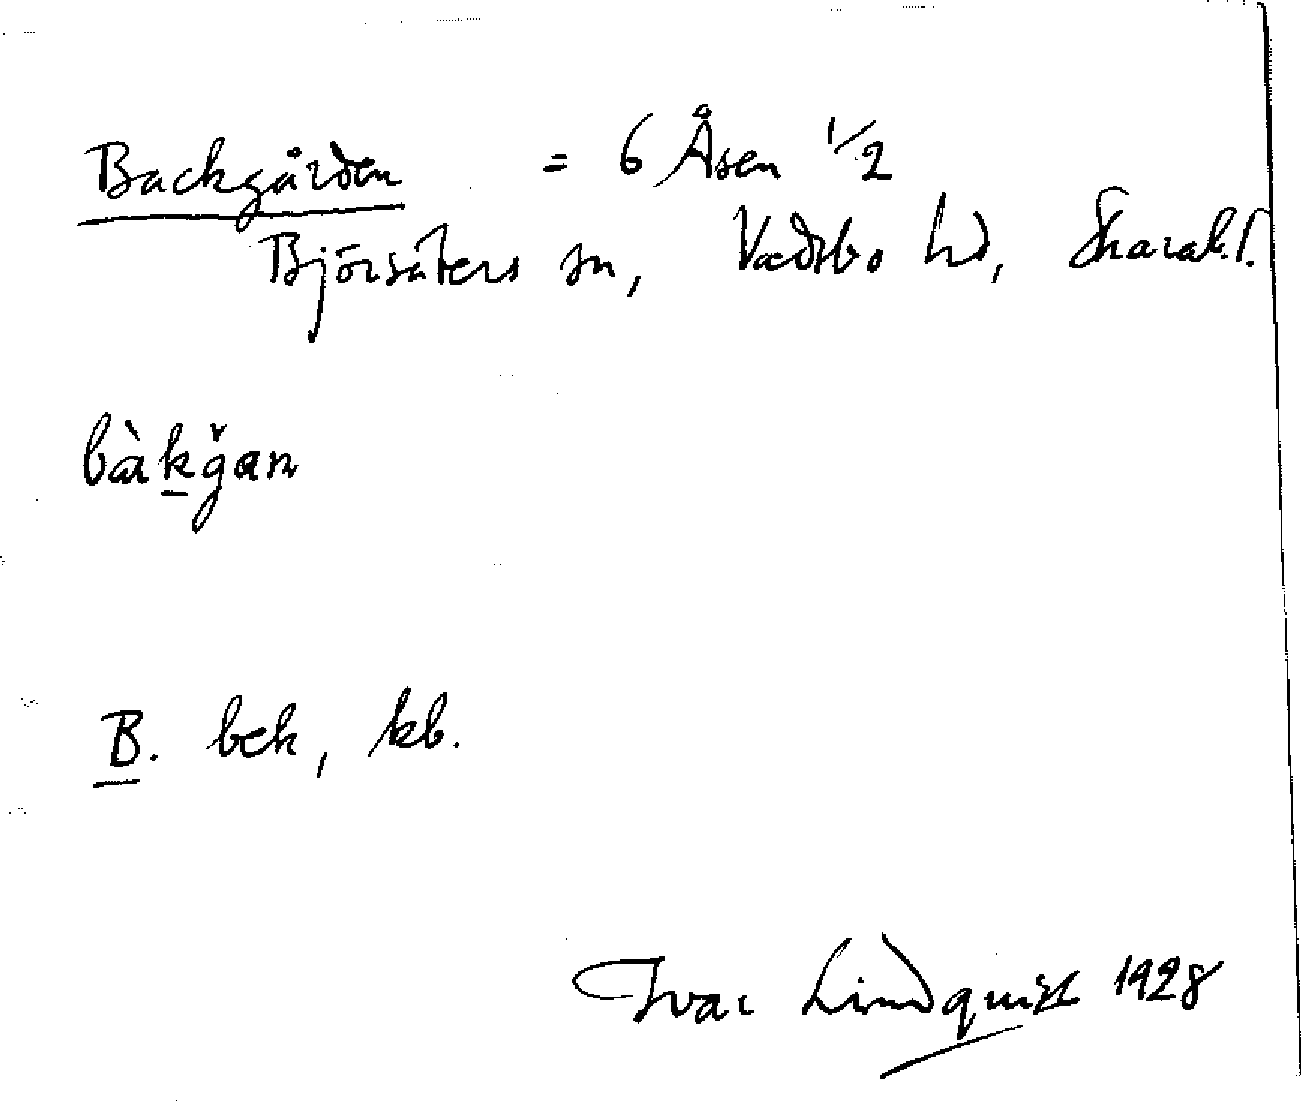 Backgården = 6 Åsen 1/2
Björsäters sn, Vadsbo hd, Skarab.l.
bàkğan
B. bek, kb.
Ivar Lindquist 1928